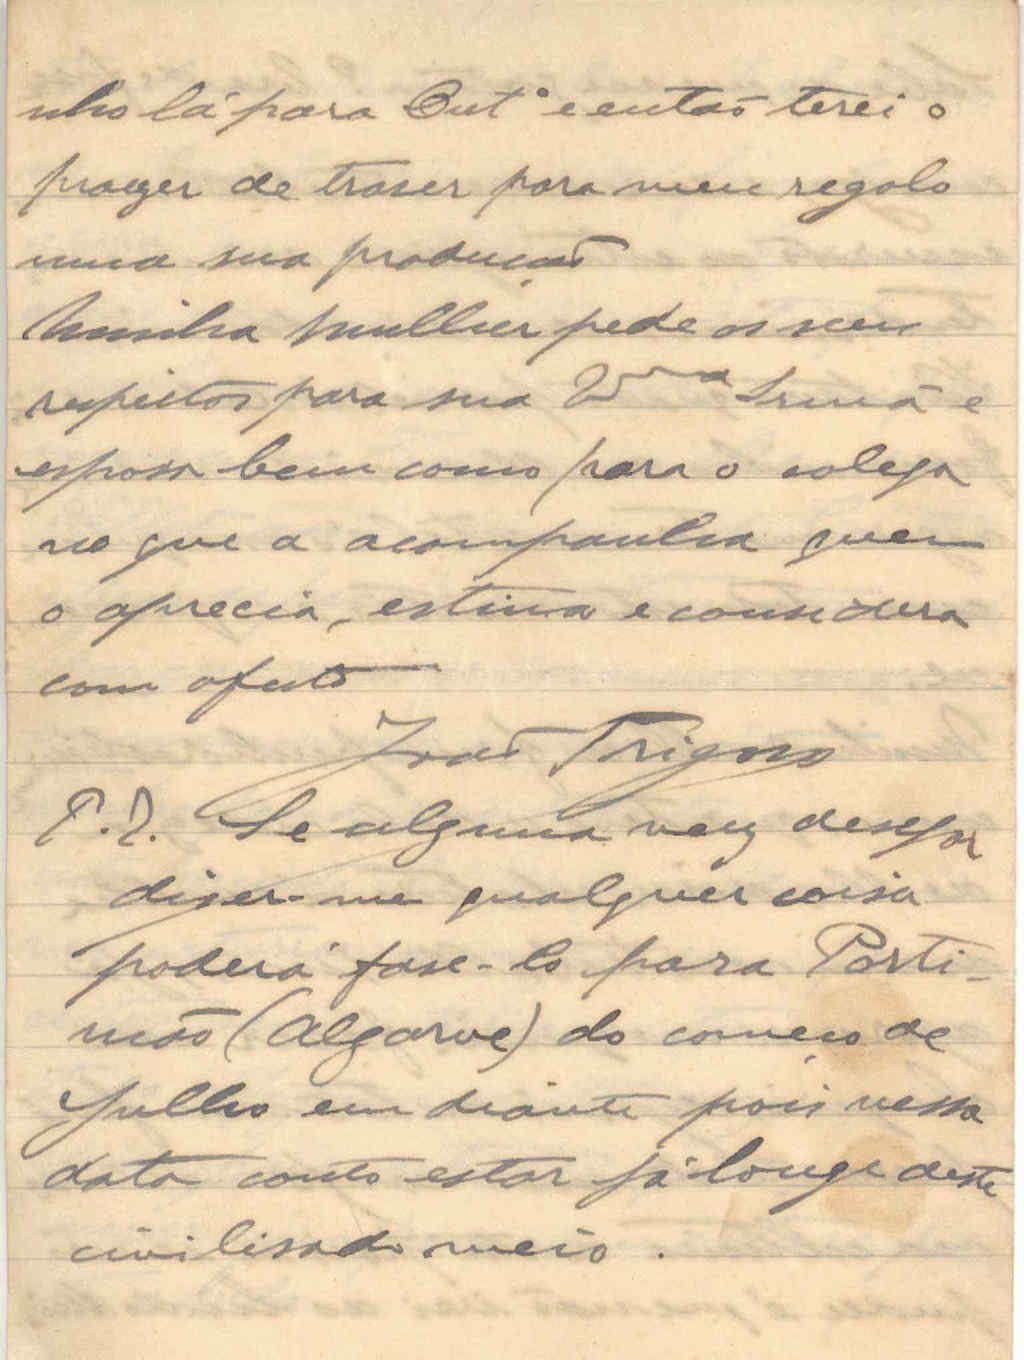 nho lá para Out.º e então terei o
prazer de traser para meu regalo
uma sua producção
Minha mulher pede os seus
respeitos para sua Irmã e
esposa bem como para o colega
no que a acompanha quem
o aprecia, estima e considera
com afecto
João Trigoso
P.S. Se alguma vez desejar
dizer-me qualquer coisa
poderá fase-lo para Porti-
mão (Algarve) do começo de
Julho em diante pois nessa
data conto estar já longe deste
civilisado meio.